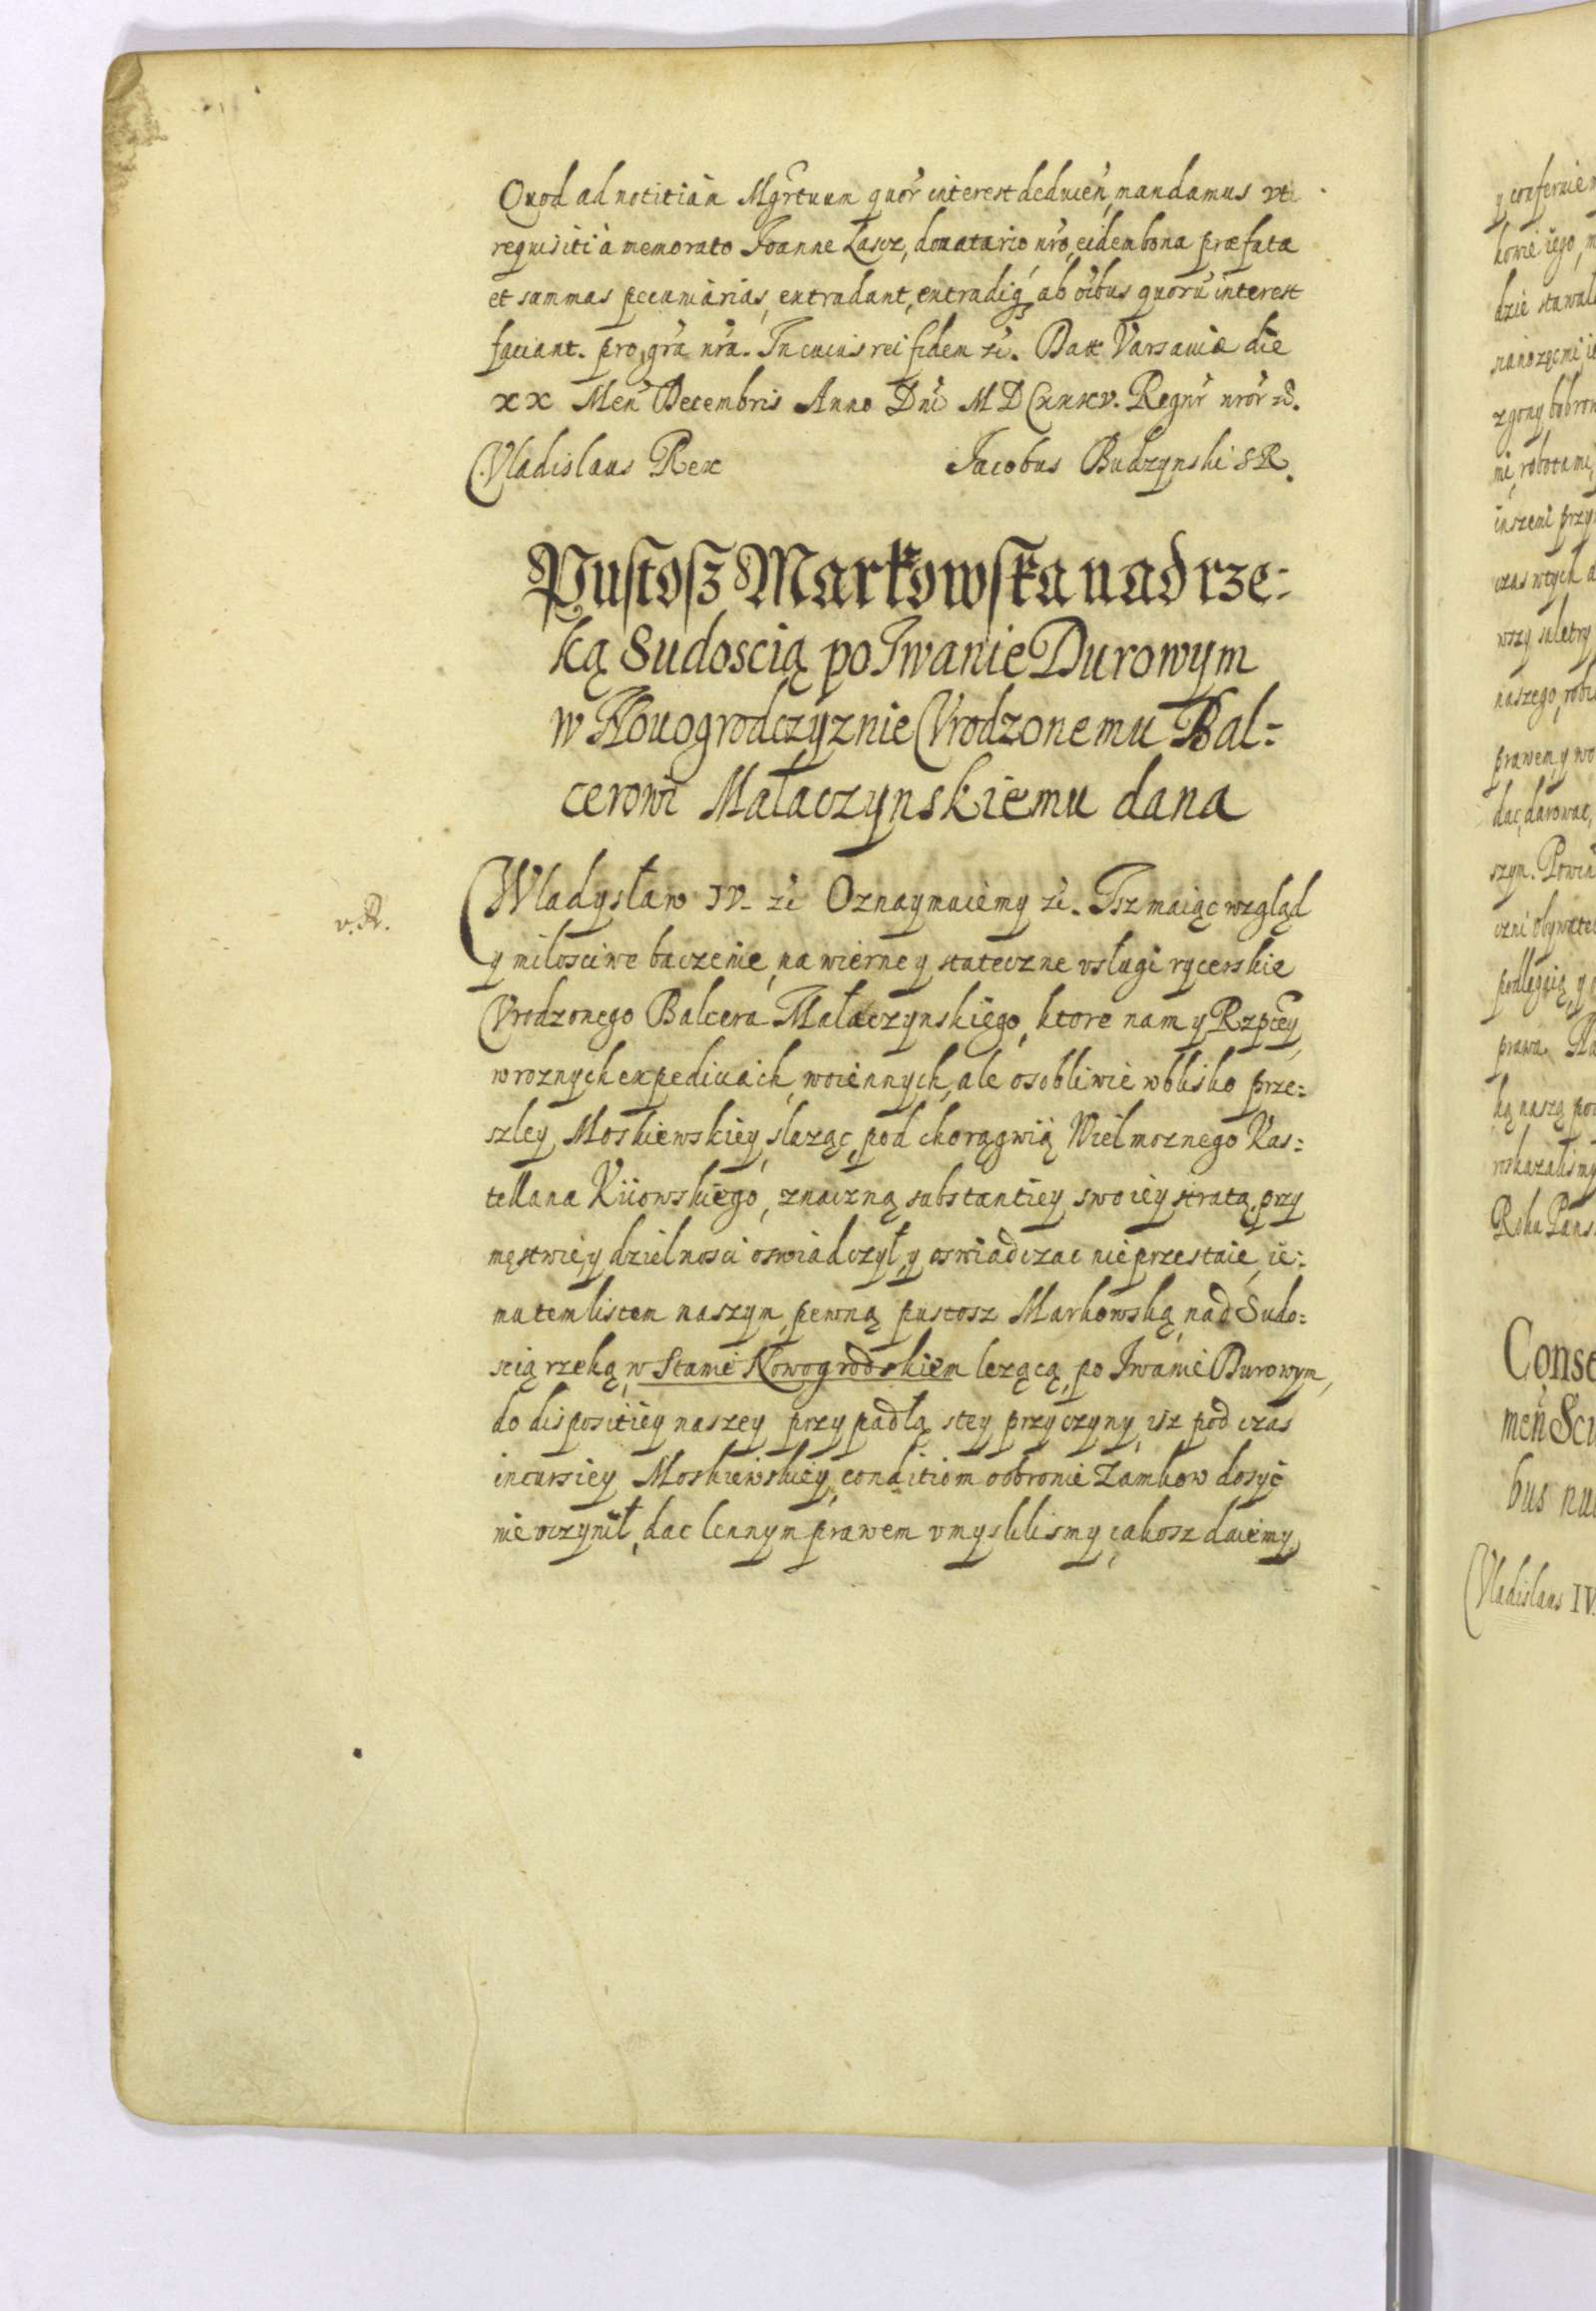 Quod ad notitiam Mgrtuum quor interest deducen, mandamus vti
requisiti à memorato Joanne Łascz, donatario nro, eidem bona præfata
et summas pecuniarias, extradant, extradiq, ab oibus quorū interest
faciant. pro gra nra. In cuius rei fidem zc. Dat Varsauiæ die
XX Men Decembris Anno Dni MDCXXXV. Regnr nror zc.
Vladislaus Rex Jacobus Budzynski SR.
Pustosz Markowska nad rze=
ką Sudoscią po Iwanie Durowym
w Nouogrodczyznie Vrodzonemu Bal=
cerowi Małaczynskiemu dana
v. R.
Władysław IV. zc Oznaymuiemy zc. Isz maiąc wzgląd
y miłosciwe baczenie, na wierne y stateczne vsługi rycerskie
Vrodzonego Balcera Małaczynskiego, ktore nam y Rzptey
w roznych expediciach, woiennych, ale osobliwie w blisko prze=
szley Moskiewskiey, słuząc, pod chorągwią Wielmoznego Kas=
tellana Kiiowskiego, znaczną substantiey swoiey stratą, przy
męstwie, y dzielnosci oswiadczył, y oswiadczac nie przestaie, ie=
mu tem listem naszym, pewną pustosz Markowską, nad Sudo=
scią rzeką, w Stanie Nowogrodskiem lezącą, po Iwanie Durowym,
do dispositiey naszey przypadłą s tey przyczyny, isz pod czas
incursiey Moskiewskiey, conditiom o obronie Zamkow dosyc
nie vczynił, dac lennym prawem vmyslilismy, iakosz daiemy,
Conse
men Scu
bus nu
Vladislaus IV.